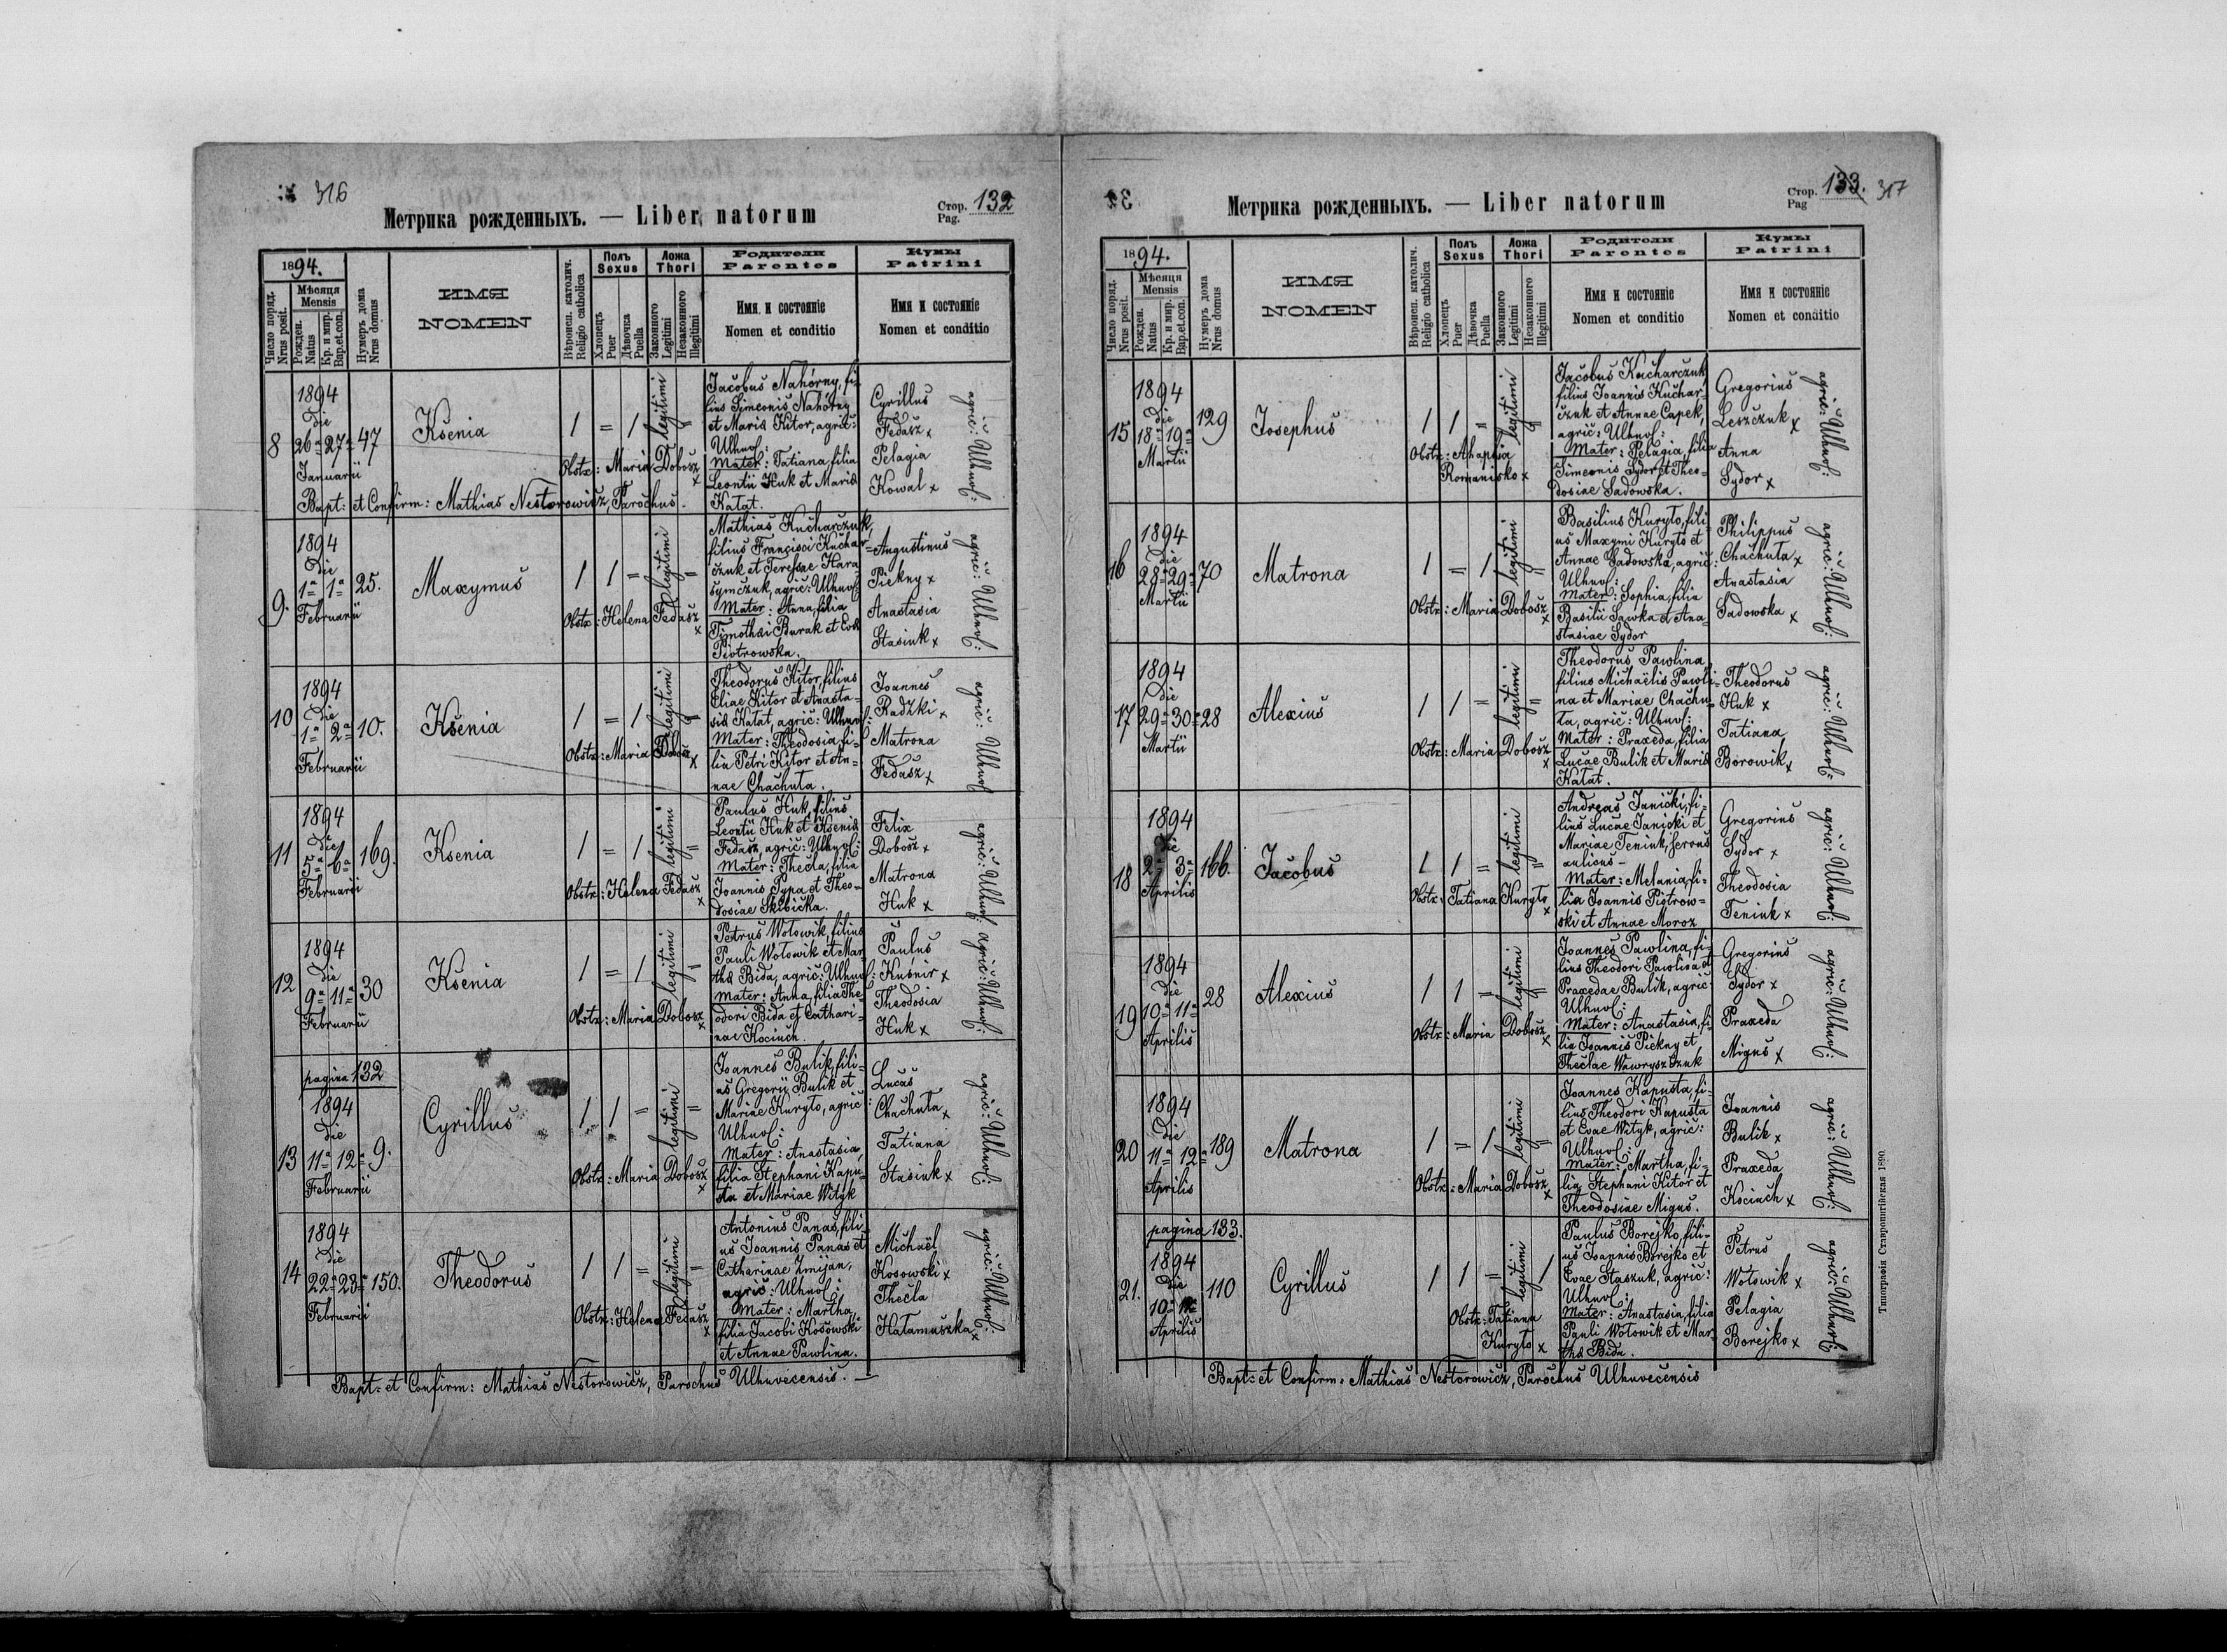 316
Метрика рожденныхъ. — Liber natorum
Стор. Pag. 132
1894.
Число поряд. Nrus posit.
Мѣсяця Mensis
Рожден. Natus
Кр. и мир. Bap. et con.
Нумеръ дома Nrus domus
ИМЯ
NOMEN
Вѣроисп. католич. Religio catholica
Полъ Sexus
Хлопецъ Puer
Дѣвочка Puella
Ложа Thori
Законного Legitimi
Незаконного Illegitimi
Родители
Parentes
Имя и состоянiе
Nomen et conditio
Кумы
Patrini
Имя и состоянiе
Nomen et conditio
8
1894
die
26a 27a
Januarii
47
Ksenia
1 = 1 legitimi =
Obstx: Maria Dobosz x
Jacobus Nahórny, fi-
lius Simeonis Nahórny
et Maria Kitor, agric:
Ulhuv:
Mater: Tatiana, filia
Leontii Huk et Maria
Katat.
Cyrillus
Fedasz x
Pelagia
Kowal x
agric: Ulhuv:
Bapt: et Confirm: Mathias Nestorowicz, Parochus.
9.
1894
Die
1a 1a
Februarii
25.
Maxymus
1 1 = legitimi =
Obstx: Helena Fedasz x
Mathias Kucharczuk,
filius Francisci Kuchar-
czuk et Teressae Hara-
symczuk, agric: Ulhuv:
Mater: Anna, filia
Timothei Burak et Eva
Piotrowska.
Augustinus
Piekny x
Anastasia
Stasiuk x
agric: Ulhuv:
10
1894
Die
1a 2a
Februarii
10.
Ksenia
1 = 1 legitimi =
Obstx: Maria Dobosz x
Theodorus Kitor, filius
Eliae Kitor et Anasta-
sia Katat, agric: Ulhuv:
Mater: Theodosia, fi-
lia Petri Kitor et An-
nae Chachuta.
Joannes
Radzki x
Matrona
Fedasz x
agric: Ulhuv:
11
1894
Die
5a 6a
Februarii
169.
Ksenia
1 = 1 legitimi =
Obstx: Helena Fedasz x
Paulus Huk, filius
Leontii Huk et Ksenia
Fedasz, agric: Ulhuv:
Mater: Thecla, filia
Joannis Pypa et Theo-
dosiae Skibicka.
Felix
Dobosz x
Matrona
Huk x
agric: Ulhuv:
12
1894
die
9a 11a
Februarii
30
Ksenia
1 = 1 legitimi =
Obstx: Maria Dobosz x
Petrus Wotowik, filius
Pauli Wotowik et Mar-
tha Bida, agric: Ulhuv:
Mater: Anna, filia The-
odori Bida et Cathari-
nae Kociuch.
Paulus
Kuśnir x
Theodosia
Huk x
agric: Ulhuv:
pagina 132
13
1894
die
11a 12a
Februarii
9.
Cyrillus
1 1 = legitimi =
Obstx: Maria Dobosz x
Joannes Bulik, fili-
us Gregorii Bulik et
Mariae Kuryto, agric:
Ulhuv:
Mater: Anastasia,
filia Stephani Kapu-
sta et Mariae Wityk
Lucas
Chachuta x
Tatiana
Stasiuk x
agric: Ulhuv:
14
1894
Die
22a 23a
Februarii
150.
Theodorus
1 1 = legitimi =
Obstx: Helena Fedasz x
Antonius Panas, fili-
us Joannis Panas et
Catharinae Zmijan,
agric: Ulhuv:
Mater: Martha,
filia Jacobi Kosowski
et Annae Pawlina.
Michaël
Kosowski x
Thecla
Hatamuszka x
agric: Ulhuv:
Bapt: et Confirm: Mathias Nestorowicz, Parochus Ulhuvecensis. —
Метрика рожденныхъ. — Liber natorum
Стор. Pag 133. 317
1894.
Число поряд. Nrus posit.
Мѣсяця Mensis
Рожден. Natus
Кр. и мир. Bap. et con.
Нумеръ дома Nrus domus
ИМЯ
NOMEN
Вѣроисп. католич. Religio catholica
Полъ Sexus
Хлопецъ Puer
Дѣвочка Puella
Ложа Thori
Законного Legitimi
Незаконного Illegitimi
Родители
Parentes
Имя и состоянiе
Nomen et conditio
Кумы
Patrini
Имя и состоянiе
Nomen et conditio
15
1894
die
18a 19a
Martii
129
Josephus
1 1 = legitimi =
Obstx: Ahaphia
Romanisko x
Jacobus Kucharczuk,
filius Joannis Kuchar-
czuk et Annae Capek,
agric: Ulhuv:
Mater: Pelagia, filia
Simeonis Sydor et Theo-
dosiae Sadowska.
Gregorius
Leszczuk x
Anna
Sydor x
agric: Ulhuv:
16
1894
Die
28a 29a
Martii
70
Matrona
1 = 1 legitimi =
Obstx: Maria Dobosz x
Basilius Kuryto, fili-
us Maxymi Kuryto et
Annae Sadowska, agric:
Ulhuv:
Mater: Sophia, filia
Basilii Sawka et Ana-
stasiae Sydor
Philippus
Chachuta x
Anastasia
Sadowska x
agric: Ulhuv:
17
1894
Die
29a 30a
Martii
28
Alexius
1 1 = legitimi =
Obstx: Maria Dobosz x
Theodorus Pawlina
filius Michaëlis Pawli-
na et Mariae Chachu-
ta, agric: Ulhuv:
Mater: Praxeda, filia
Lucae Bulik et Maria
Katat.
Theodorus
Huk x
Tatiana
Borowik x
agric: Ulhuv:
18
1894
Die
2a 3a
Aprilis
166.
Jacobus
1 1 = legitimi =
Obstx: Tatiana Kuryto x
Andreas Janicki, fi-
lius Lucae Janicki et
Mariae Teniuk, servus
aulicus —
Mater: Melania, fi-
lia Joannis Piotrow-
ski et Annae Moroz
Gregorius
Sydor x
Theodosia
Teniuk x
agric: Ulhuv:
19
1894
die
10a 11a
Aprilis
28
Alexius
1 1 = legitimi =
Obstx: Maria Dobosz x
Joannes Pawlina, fi-
lius Theodori Pawlina et
Praxedae Bulik, agric:
Ulhuv:
Mater: Anastasia, fi-
lia Joannis Piekny et
Theclae Wawryszczuk
Gregorius
Sydor x
Praxeda
Migus x
agric: Ulhuv:
20
1894
Die
11a 12a
Aprilis
189
Matrona
1 = 1 legitimi =
Obstx: Maria Dobosz x
Joannes Kapusta, fi-
lius Theodori Kapusta
et Evae Wityk, agric:
Ulhuv:
Mater: Martha, fi-
lia Stephani Kitor et
Theodosiae Migus.
Joannis
Bulik x
Praxeda
Kociuch x
agric: Ulhuv:
pagina 133.
21.
1894
Die
10a 11a
Aprilis
110
Cyrillus
1 1 = legitimi /
Obstx: Tatiana
Kuryto x
Paulus Borejko, fili-
us Joannis Borejko et
Evae Staszuk, agric:
Ulhuv:
Mater: Anastasia, filia
Pauli Wotowik et Mar-
tha Bida.
Petrus
Wotowik x
Pelagia
Borejko x
agric: Ulhuv:
Bapt: et Confirm: Mathias Nestorowicz, Parochus Ulhuvecensis
Типографiя Ставропигiйская 1890.